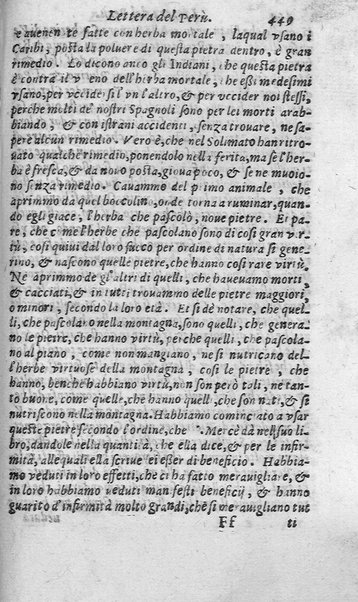 Lettera del Perù. 449
e auenenate fatte con herba mortale, laqual vsano i
Caribi, posta la poluere di questa pietra dentro, è gran
rimedio. Lo dicono anco gli Indiani, che questa pietra
è contra il veneno dell'herba mortale, che essi medesimi
vsano, per vccidersi l'vn l'altro, & per vccider noi stessi,
perche molti de' nostri Spagnoli sono per lei morti arab-
biando, & con istrani accidenti, senza trouare, ne sa-
pere alcun rimedio. Vero è, che nel Solimato han ritro-
uato qualche rimedio, ponendolo nella ferita, ma se l'her-
ba è fresca, & da nouo posta, gioua poco, & se ne muoio-
no senza rimedio. Cauammo del primo animale, che
aprimmo da quel boccolino, onde torna a ruminar, quan-
do egli giace, l'herba che pascolò, noue pietre. Et pa-
re, che come l'herbe che pascolano sono di così gran vir-
tù, così quiui dal loro succo per ordine di natura si gene-
rino, & nascono quelle pietre, che hanno così rare virtù.
Ne aprimmo de gl'altri di quelli, che haueuamo morti,
& cacciati, & in tutti trouammo delle pietre maggiori,
o minori, secondo la loro età. Et si dè notare, che quel-
li, che pascolano nella montagna, sono quelli, che genera-
no le pietre, che hanno virtù, perche quelli, che pascola-
no al piano, come non mangiano, ne si nutricano del-
l'herbe virtuose della montagna, così le pietre, che
hanno, benche habbiano virtù, non son però tali, ne tan-
to buone, come quelle, che hanno quelli, che pascono, & si
nutriscono nella montagna. Habbiamo cominciato a vsar
queste pietre secondo l'ordine, che V. Mercè dà nel suo li-
bro, dandole nella quantità, che ella dice, & per le infir-
mità, alle quali ella scriue ei esser di beneficio. Habbia-
mo veduti in loro effetti, che ci ha fatto merauigliare, &
in loro habbiamo veduti manifesti beneficij, & hanno
guarito d'infirmità molto grandi, che si merauigliano tut
Ff ti